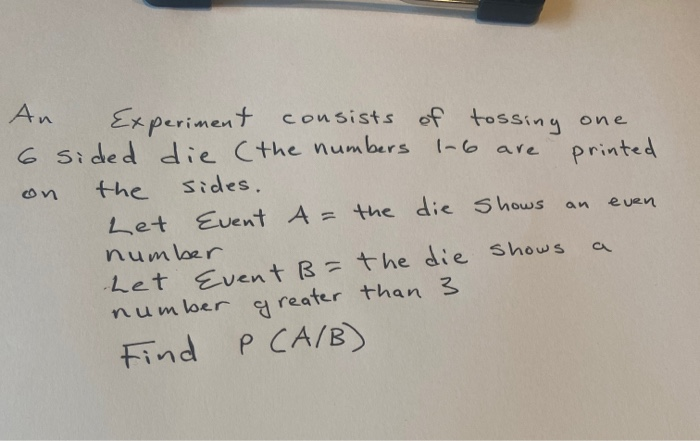 An Experiment consists of tossing one
6 sided die (the numbers 1-6 are printed
on the sides.
Let Event A = the die shows an even
number
Let Event B = the die shows a
number greater than 3
Find P(A/B)